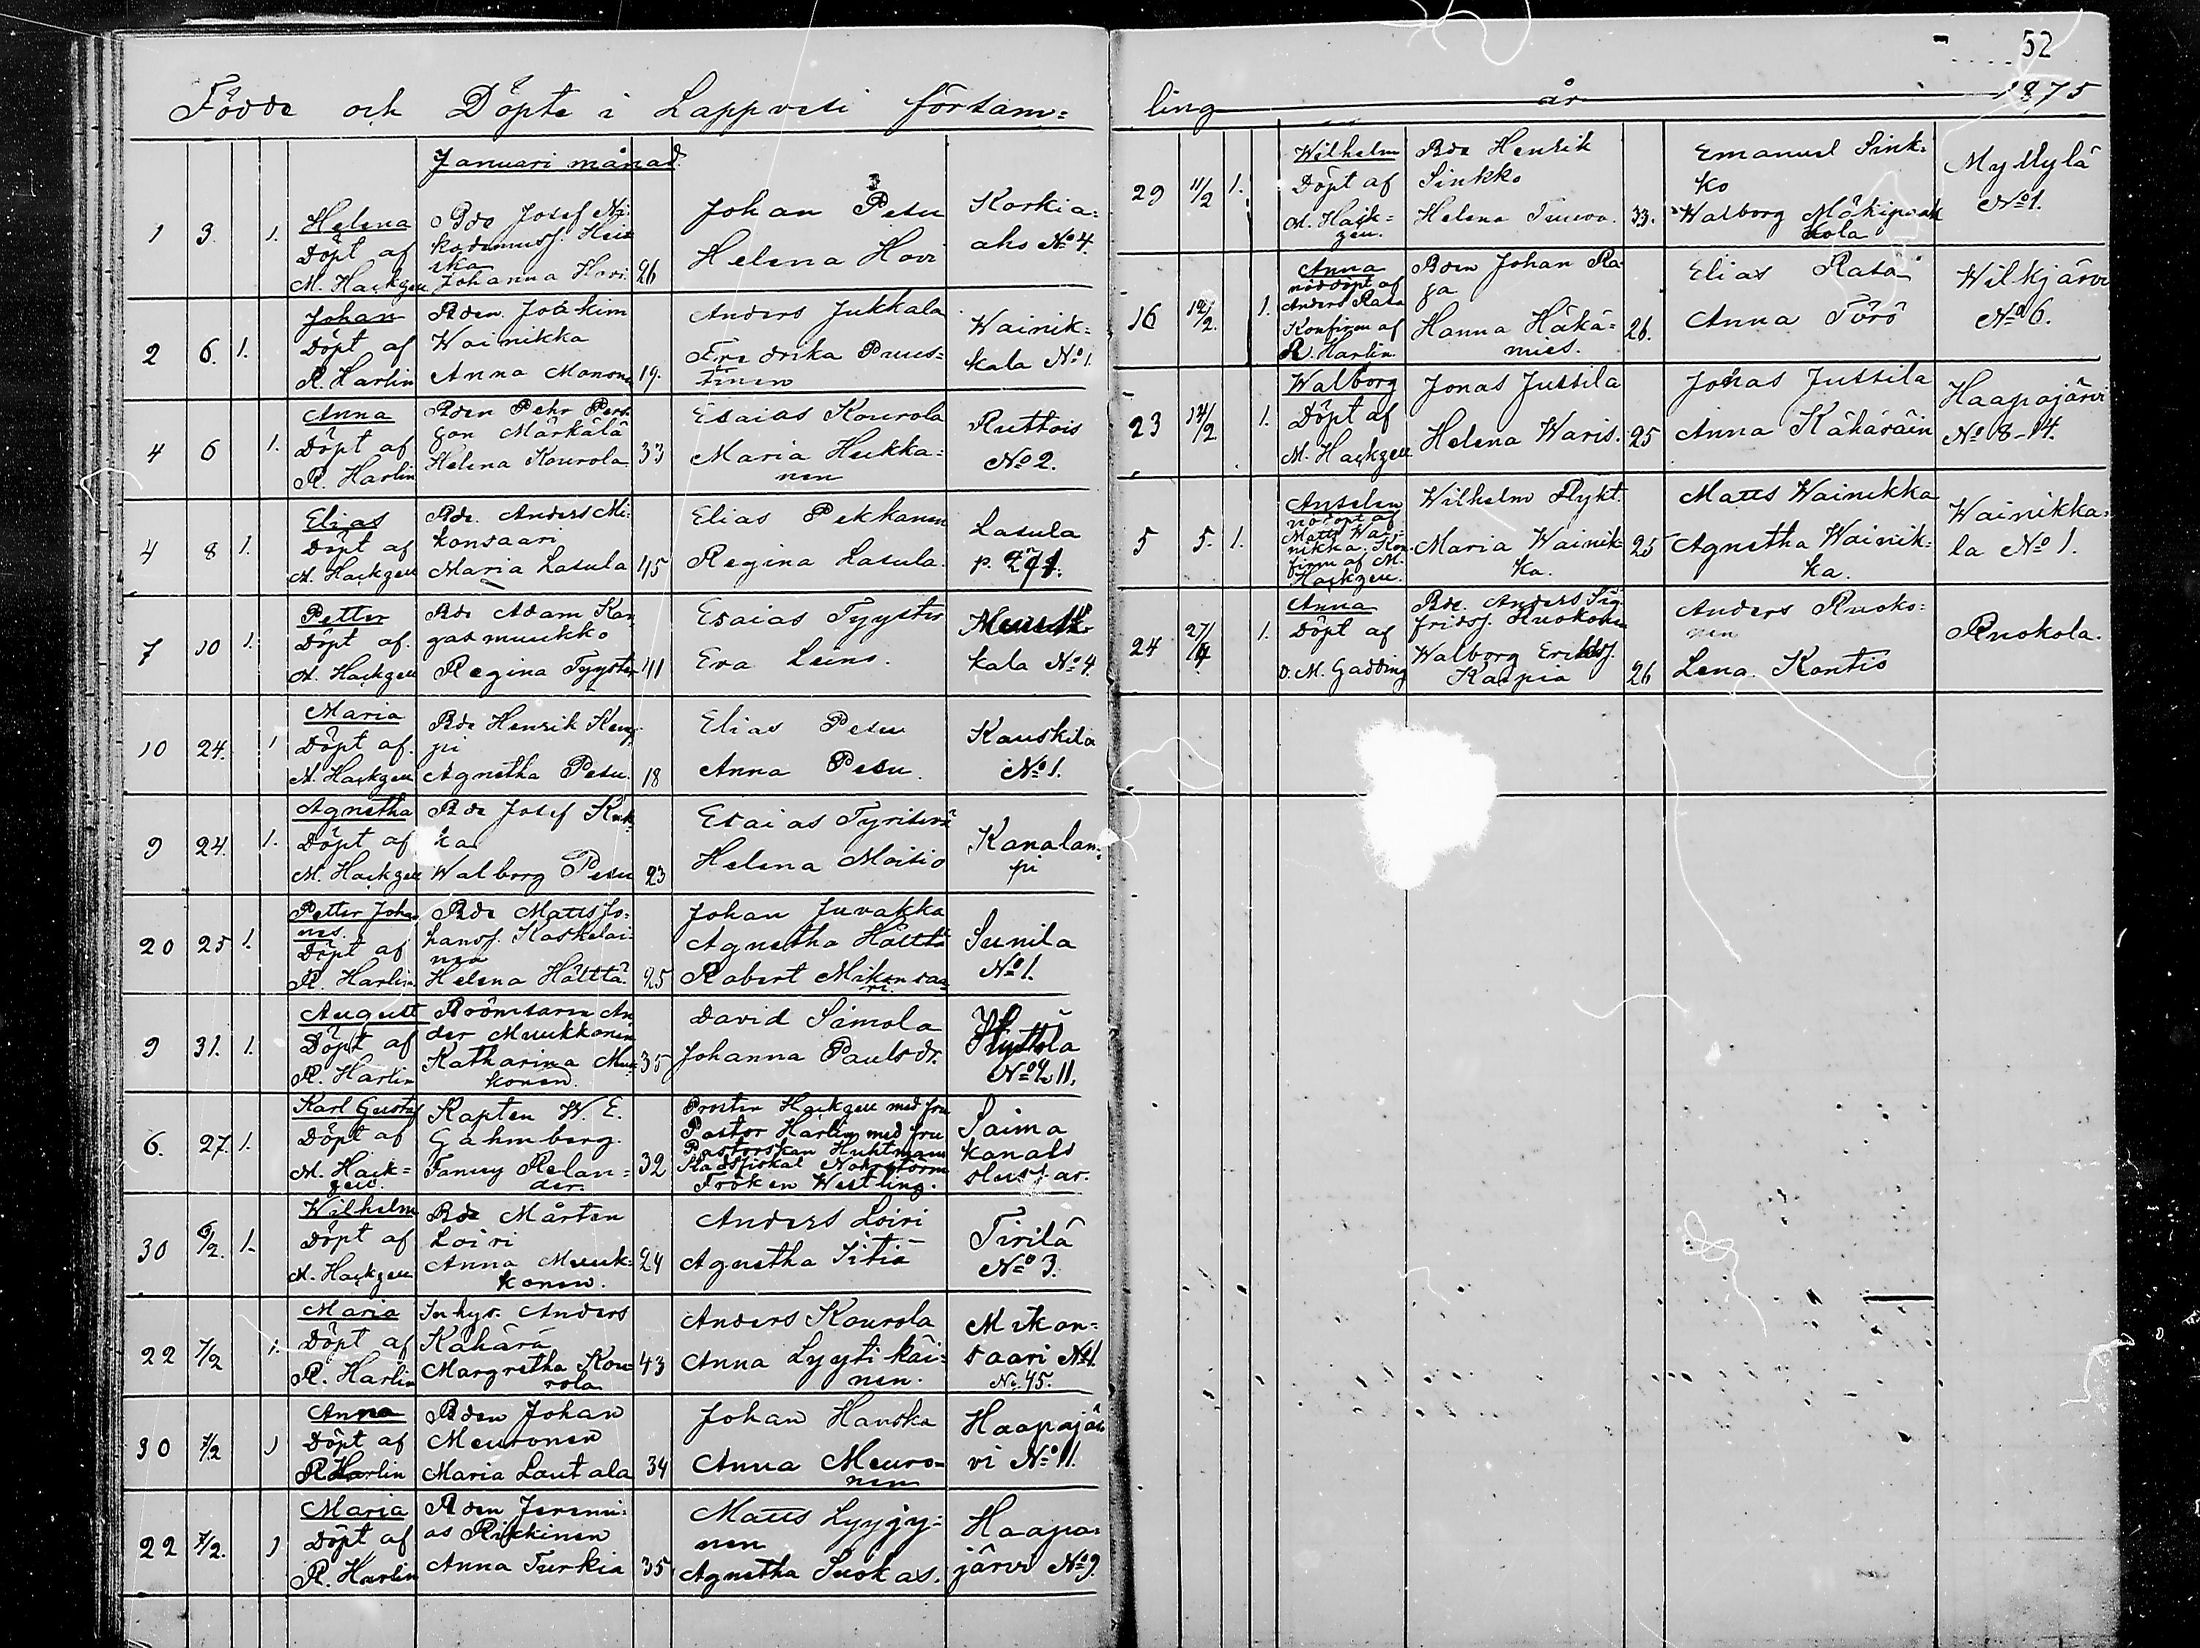 52
Födde och Döpte i Lappvesi försam=
ling år 1875
Januari månad.
1 3. 1. Helena
Döpt af
M. Hackzell
Bde Josef Ni=
Johanna Hovi 26
Johan Pesu
Helena Hovi
Korkia=
aho No 4.
2 6. 1. Johan
Döpt af
R. Harlin
Bden Joakim
Wainikka
Anna Monone 19.
Anders Jukkala
Fredrika Puus=
tinen
Wainik=
kala No 1.
4 6 1. Anna
Döpt af
R. Harlin
Bden Pehr Pers
son Märkälä
Helena Kourola 33
Esaias Kourola
Maria Hukka=
nen
Ruttois
No 2.
4 8 1. Elias
Döpt af
M. Hackzell
Bde. Anders Mi=
konsaari
Maria Lasula 45
Elias Pekkanen
Regina Lasula.
Lasula
p. 271.
7 10 1. Petter
Döpt af.
M. Hackzell
Bde Adam Kan
gasmuukko
Regina Tyyster 41
Esaias Tyyster
Eva Leino.
kala No 4.
10 24. 1 Maria
Döpt af.
M. Hackzell
Bde Henrik Kemp
pi
Agnetha Pesu. 18
Elias Pesu
Anna Pesu.
Kauskila
No 1.
9 24. 1. Agnetha
Döpt af
M. Hackzell
Bde Josef Kuk
ka
Walborg Pesu 23
Esaias Tyriseva
Helena Moisio
Kanalam=
pi
20 25 1. Petter Johan
nes.
Döpt af
R. Harlin
Bde Matts Jo=
hansf. Kaskelai=
nen
Helena Hölttä. 25
Johan Juvakka
Agnetha Hölttä
Robert Mikonsaa=
ri.
Sunila
No 1.
9 31. 1. August
Döpt af
R. Harlin
An
der Muukkonen
Katharina Muu=
konen. 35
David Simola
Johanna Paulsdr.
Hyttölä
No 9, 11.
6. 27. 1. Karl Gustaf
Döpt af
M. Hack=
zell.
Kapten W. E.
Gahmberg.
Fanny Relan=
der. 32
Prosten Hackzell med fru
Pastor Harlin med fru
Pastorskan Huhtman
Stadsfiskal Nohrström
Fröken Westling.
Saima
kanals
slussar.
30 6/2. 1. Wilhelm
Döpt af
M. Hackzell
Bde Mårten
Loiri
Anna Muuk=
konen. 24
Anders Loiri
Agnetha Iitiä
Tirilä
No 3.
22 7/2 1. Maria
Döpt af
R. Harlin
Inhys. Anders
Kähärä
Margretha Kou=
rola 43
Anders Kourola
Anna Lyytikäi=
nen.
Mikon=
saari No 1.
No 45.
30 7/2 1 Anna
Döpt af
R Harlin
Bden Johan
Meuronen
Maria Lautala 34
Johan Hanska
Anna Meuro=
nen
Haapajär
vi No 11.
22 7/2. 1 Maria
Döpt af
R. Harlin
Bden Jeremi=
as Rikkinen
Anna Turkia 35
Matts Lyyjy=
nen
Agnetha Suokas.
Haapa=
järvi No 9.
29 11/2 1. Wilhelm
Döpt af
M. Hack=
zell.
Bde Henrik
Sinkko
Helena Tuuva. 33.
Emanuel Sink=
ko
Walborg
Myllylä
No 1.
16 12/2. 1. Anna
nöddöpt af
Anders Rasa
Konfirm af
R. Harlin
Bden Johan Ra
sa
Hanna Häkä=
mies. 26.
Elias Rasa
Anna Törö
Wilkjärvi
No 6.
23 14/2 1. Walborg
Döpt af
M. Hackzell
Jonas Jussila
Helena Waris. 25
Jonas Jussila
Anna Kähäräin
Haapajärvi
No 8-14.
5 5. 1. Anselm
nöddöpt af
Matts Wai=
nikka. Kon
firm af M.
Hackzell.
Wilhelm Flykt.
Maria Wainik=
ka. 25
Matts Wainikka
Agnetha Wainik=
ka.
Wainikka=
la No 1.
24 27/4 1. Anna
Döpt af
O. M. Gadding
Bde. Anders Sig
fridsf. Ruokonen
Walborg Eriksdf.
Karpia 26
Anders Ruoko=
nen
Lena Kontio
Ruokola.